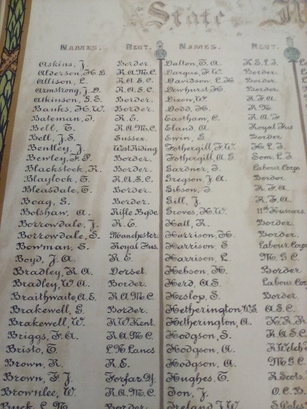 State
NAMES. REGT. NAMES. REGT.
Askins, J. Border Dalton, T. A. K.S.L.I.
Alderson, H. D. R.A.M.C. Dargue, F. W. Border.
Allison, L. R.A.S.C. Davidson, H. Border.
Armstrong, J. D. R.A.S.C. Dewhurst, H. Border.
Atkinson, S. E. Border. Dixon, W. R.F.A.
Banks, H. W. Border. Dodd, H. R.N.
Bateman, J. R.E. Eastham, C. R.A.F.
Bell, T. R.A.M.C. Eland, A. Royal Fus
Bell, J. S. Sussex Ewin, S. Border.
Bentley, J. West Riding Fothergill, F. W. H.L.I.
Bewley, F. P. Border. Fothergill, A. G. Som. L.I.
Blacklock, R. Border. Gardner, J. Labour Corps
Blaylock, T. R.A.S.C. Gregson, J. A. Border.
Bleasdale, T. Border. Gibson, J. R.F.A.
Boag, S. Border. Gill, J. R.F.A.
Botshaw, A. Rifle Bgde. Groves, H. W. 11th Hussars
Borrowdale, J. R.E. Hall, R. Border.
Borrowdale, E. Manchester Harrison, H. Border.
Bowman, S. Royal Fus. Harrison, E. Labour Corps
Boyd, J. A. R.E. Harrison, L. M.G.C.
Bradley, R. A. Dorset Hebson, H. Border.
Bradley, W. A. Border. Herd, A. S. Labour Cor
Braithwaite, A. E. R.A.M.C. Heslop, S. Border.
Brakewell, G. Border. Hetherington, W. R.F.A.
Brakewell, W. R.W.Kent. Hetherington, A. K.R.R.
Briggs, F. A. R.A.M.C. Hodgson, S. R.G.A.
Bristo, T. E.N. Lancs Hodgson, A. R. Welch
Brown, R. R.E. Hodgson, A. M.G.C.
Brown, F. J. Forfar. Hughes, T. R. Scots
Brownlee, W. R.A.M.C. Ion, J. O.C.
Buck, C. M. Border Ireland, W.